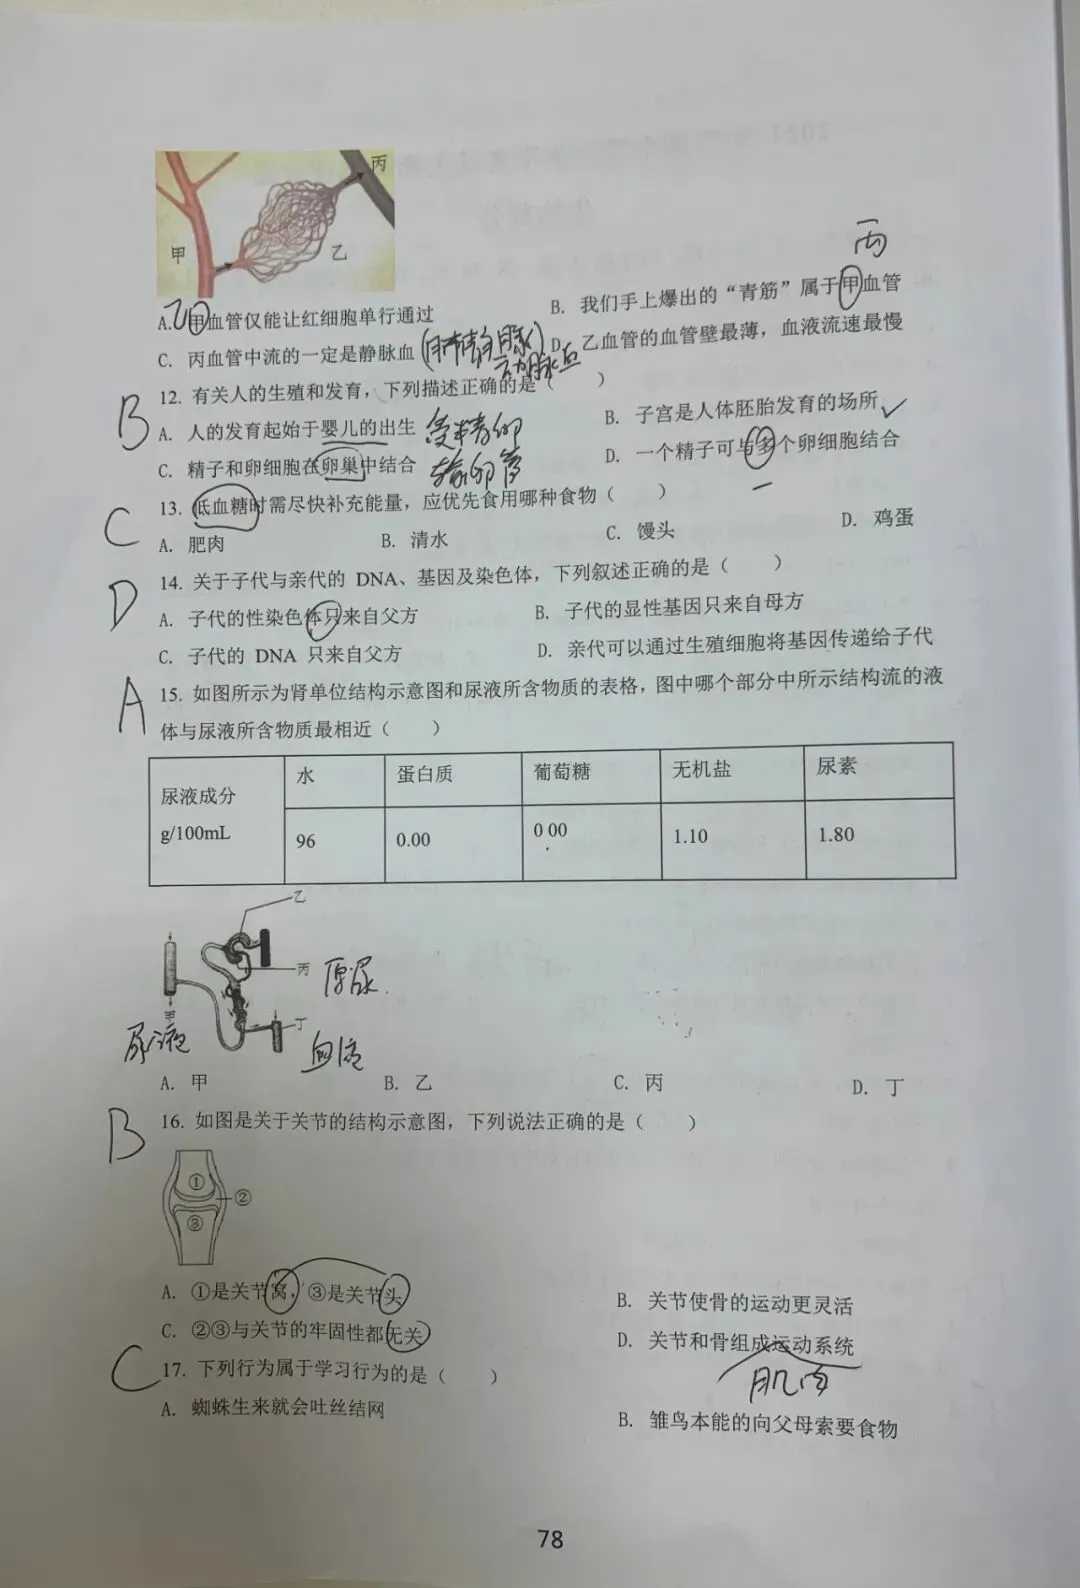 丙
甲
乙
丙
A. 甲血管仅能让红细胞单行通过 B. 我们手上爆出的“青筋”属于甲血管
乙
C. 丙血管中流的一定是静脉血 D. 乙血管的血管壁最薄，血液流速最慢
(肺静脉)
动脉血
12. 有关人的生殖和发育，下列描述正确的是（ ）
B
A. 人的发育起始于婴儿的出生 B. 子宫是人体胚胎发育的场所
受精卵
C. 精子和卵细胞在卵巢中结合 D. 一个精子可与多个卵细胞结合
输卵管
一
13. 低血糖时需尽快补充能量，应优先食用哪种食物（ ）
C
A. 肥肉 B. 清水 C. 馒头 D. 鸡蛋
14. 关于子代与亲代的 DNA、基因及染色体，下列叙述正确的是（ ）
D
A. 子代的性染色体只来自父方 B. 子代的显性基因只来自母方
C. 子代的 DNA 只来自父方 D. 亲代可以通过生殖细胞将基因传递给子代
A
15. 如图所示为肾单位结构示意图和尿液所含物质的表格，图中哪个部分中所示结构流的液
体与尿液所含物质最相近（ ）
尿液成分 水 蛋白质 葡萄糖 无机盐 尿素
g/100mL 96 0.00 0 00 1.10 1.80
乙
丙 原尿
甲
丁
尿液
血液
A. 甲 B. 乙 C. 丙 D. 丁
B
16. 如图是关于关节的结构示意图，下列说法正确的是（ ）
①
②
③
A. ①是关节窝，③是关节头 B. 关节使骨的运动更灵活
C. ②③与关节的牢固性都无关 D. 关节和骨组成运动系统
肌肉
C
17. 下列行为属于学习行为的是（ ）
A. 蜘蛛生来就会吐丝结网 B. 雏鸟本能的向父母索要食物
78